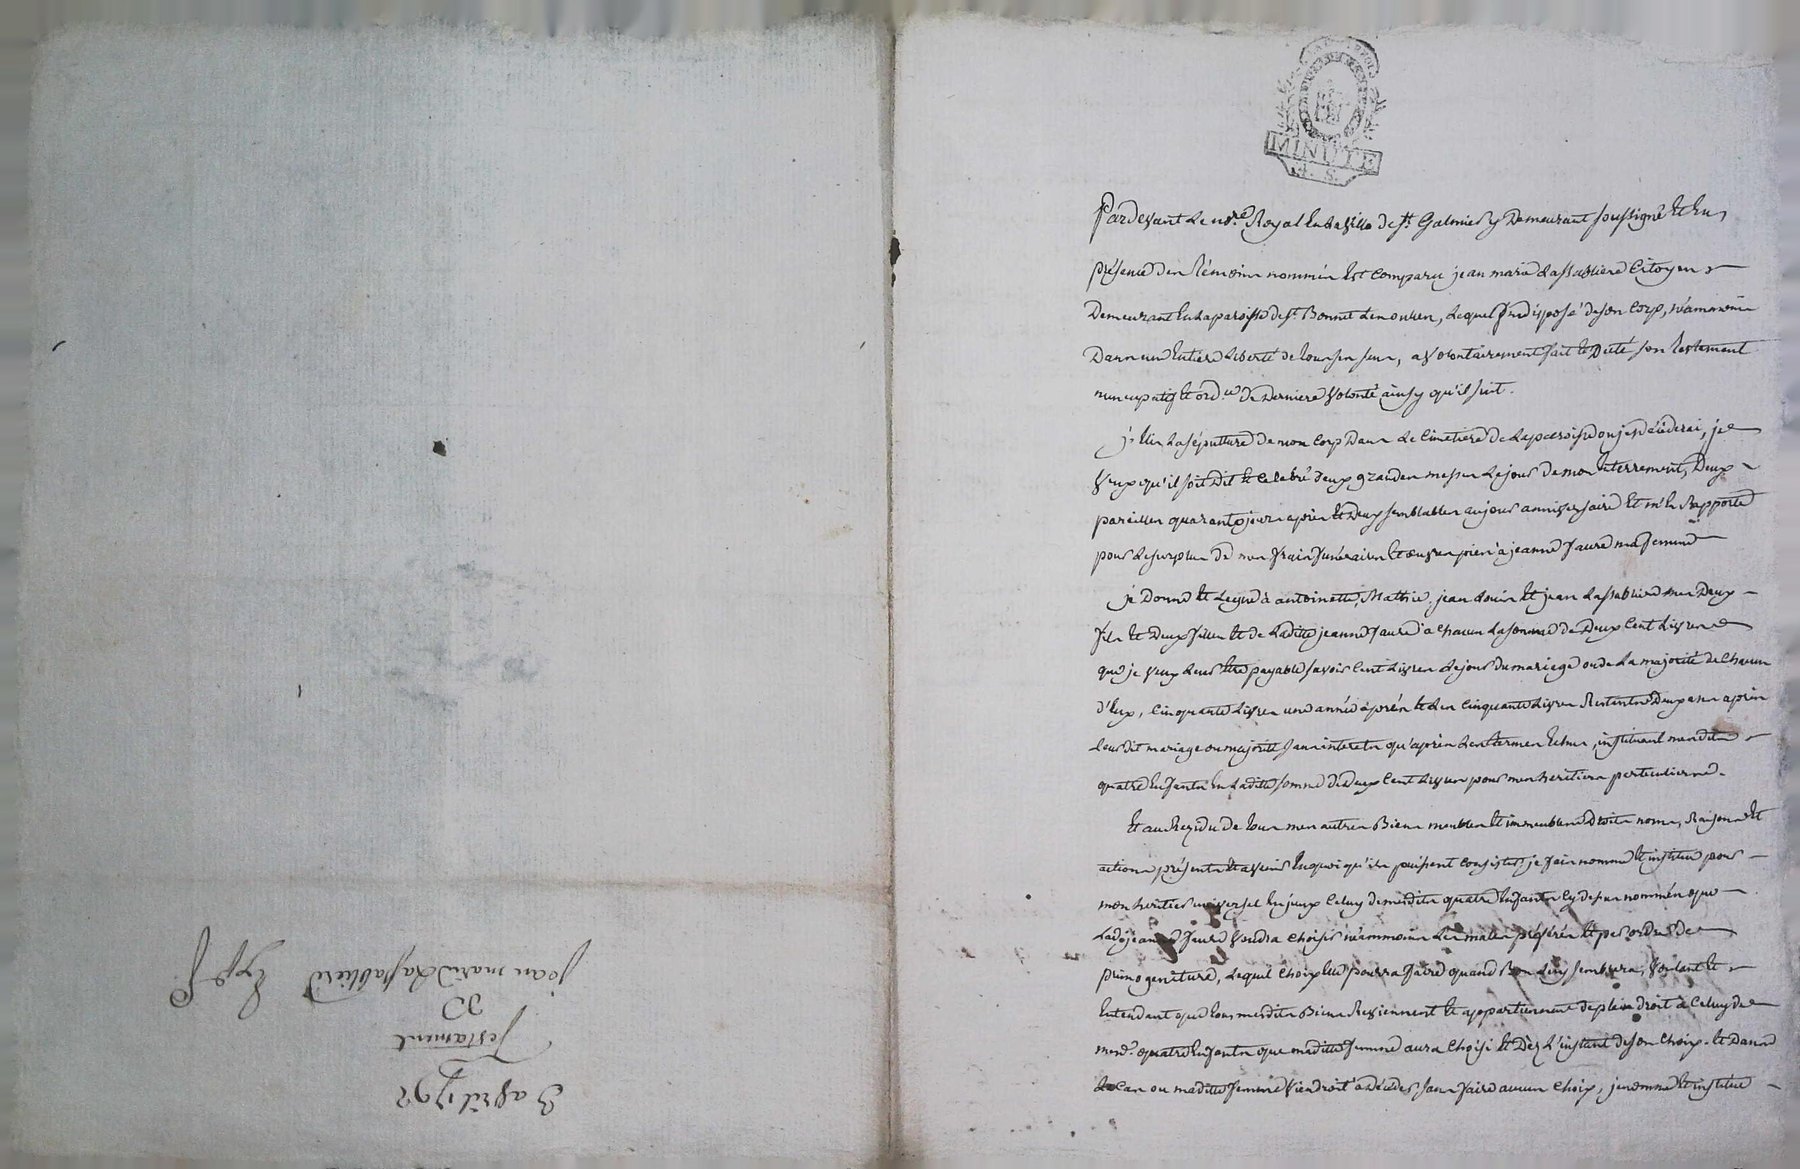 MINUTE
4. S.
Pardevant le nore. Royal en la ville de st. Galmier y demeurant soussigné et en
présence des témoins nommés est comparu jean marie Lassabliere Citoyen
Demeurant en la paroisse de st. Bonnet les oulles, lequel indisposé de son corp, néammoins
Dans une entiere liberté de tous ses sens, a volontairement fait et dicté son testament
nuncupatif et ordre. de derniere volonté ainsy qu'il suit.
j'élis la sépulture de mon corp dans le cimetiere de la paroisse ou je décéderai, je
veux qu'il soit dit et célébré deux grandes messes le jour de mon enterrement, Deux
pareilles quarante jours après et deux semblables au jour anniversaire et m'en rapporte
pour le surplus de mes frais funéraires et œuvres pies à jeanne faure ma femme
je donne et legue à antoinette, Mathie, jean louis et jean Lassabliere mes deux
fils et deux filles et de laditte jeanne faure à chacun la somme de deux cent livres
que je veux leur être payable savoir cent livres le jour du mariage ou de la majorité de chacun
d'eux, cinquante livres une année après et les cinquante livres restantes deux ans après
leurdit mariage ou majorité sans interets qu'après les termes echus, instituant mesdits
quatre enfants en laditte somme de deux cent livres pour mes heritiers particuliers.
Et au Rezidu de tous mes autres biens meubles et immeubles droits noms, raisons et
actions présents et avenir en quoi qu'ils puissent consister je fais nomme et institue pour
mon heritier universel en iceux celuy de mesdits quatre enfants cy dessus nommés que
lade. jeanne faure voudra choisir néammoins les males préférés et par ordre de
primogeniture, lequel choix elle pourra faire quand bon luy semblera, voulant et
entendant que tous mesdits biens reviennent et appartiennent de plein droit à celuy de
mesd. quatre enfants que maditte femme aura choisi et dez l'instant de son choix. Et dans
le cas ou maditte femme viendroit à décéder sans faire aucun choix, je nomme et institue
3 avril 1792
Testament
de
jean marie Lassabliere
Expé.